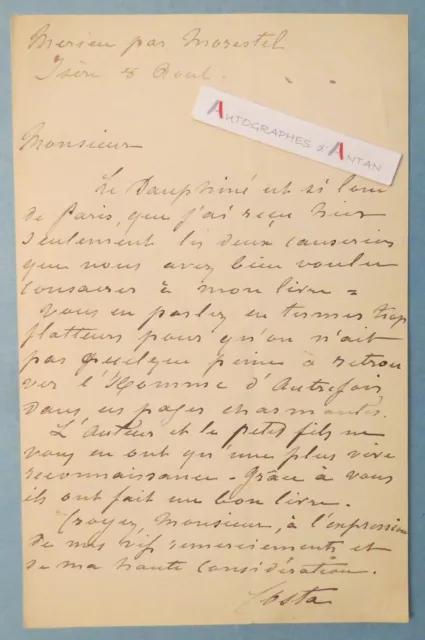 Merieu par Morestel
Isère 8 Aout.
AUTOGRAPHES d'ANTAN
Monsieur
Le Dauphiné est si loin
de Paris, que j'ai reçu hier
seulement les deux causeries
que vous avez bien voulu
consacrer à mon livre =
Vous en parlez en termes trop
flatteurs pour qu'on n'ait
pas quelque peine à retrou
ver l'Homme d'Autrefois
dans ces pages charmantes.
L'Auteur et le petit fils ne
vous en ont qu'une plus vive
reconnaissance - Grâce à vous
ils ont fait un bon livre.
Croyez, Monsieur, à l'expression
de mes vifs remerciements et
de ma haute considération.
Costa